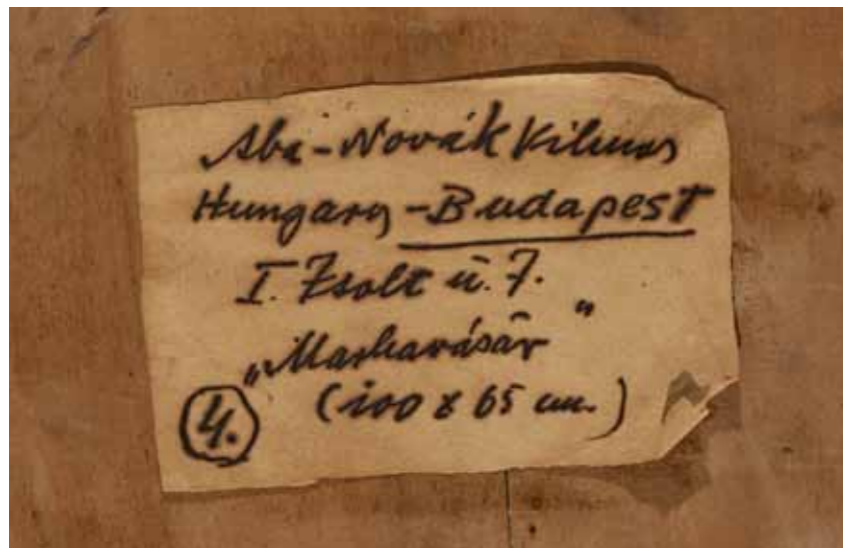 Aba-Novák Vilmos
Hungary-Budapest
I. Zsolt u. 7.
„Marhavásár”
(100 x 65 cm.)
4.